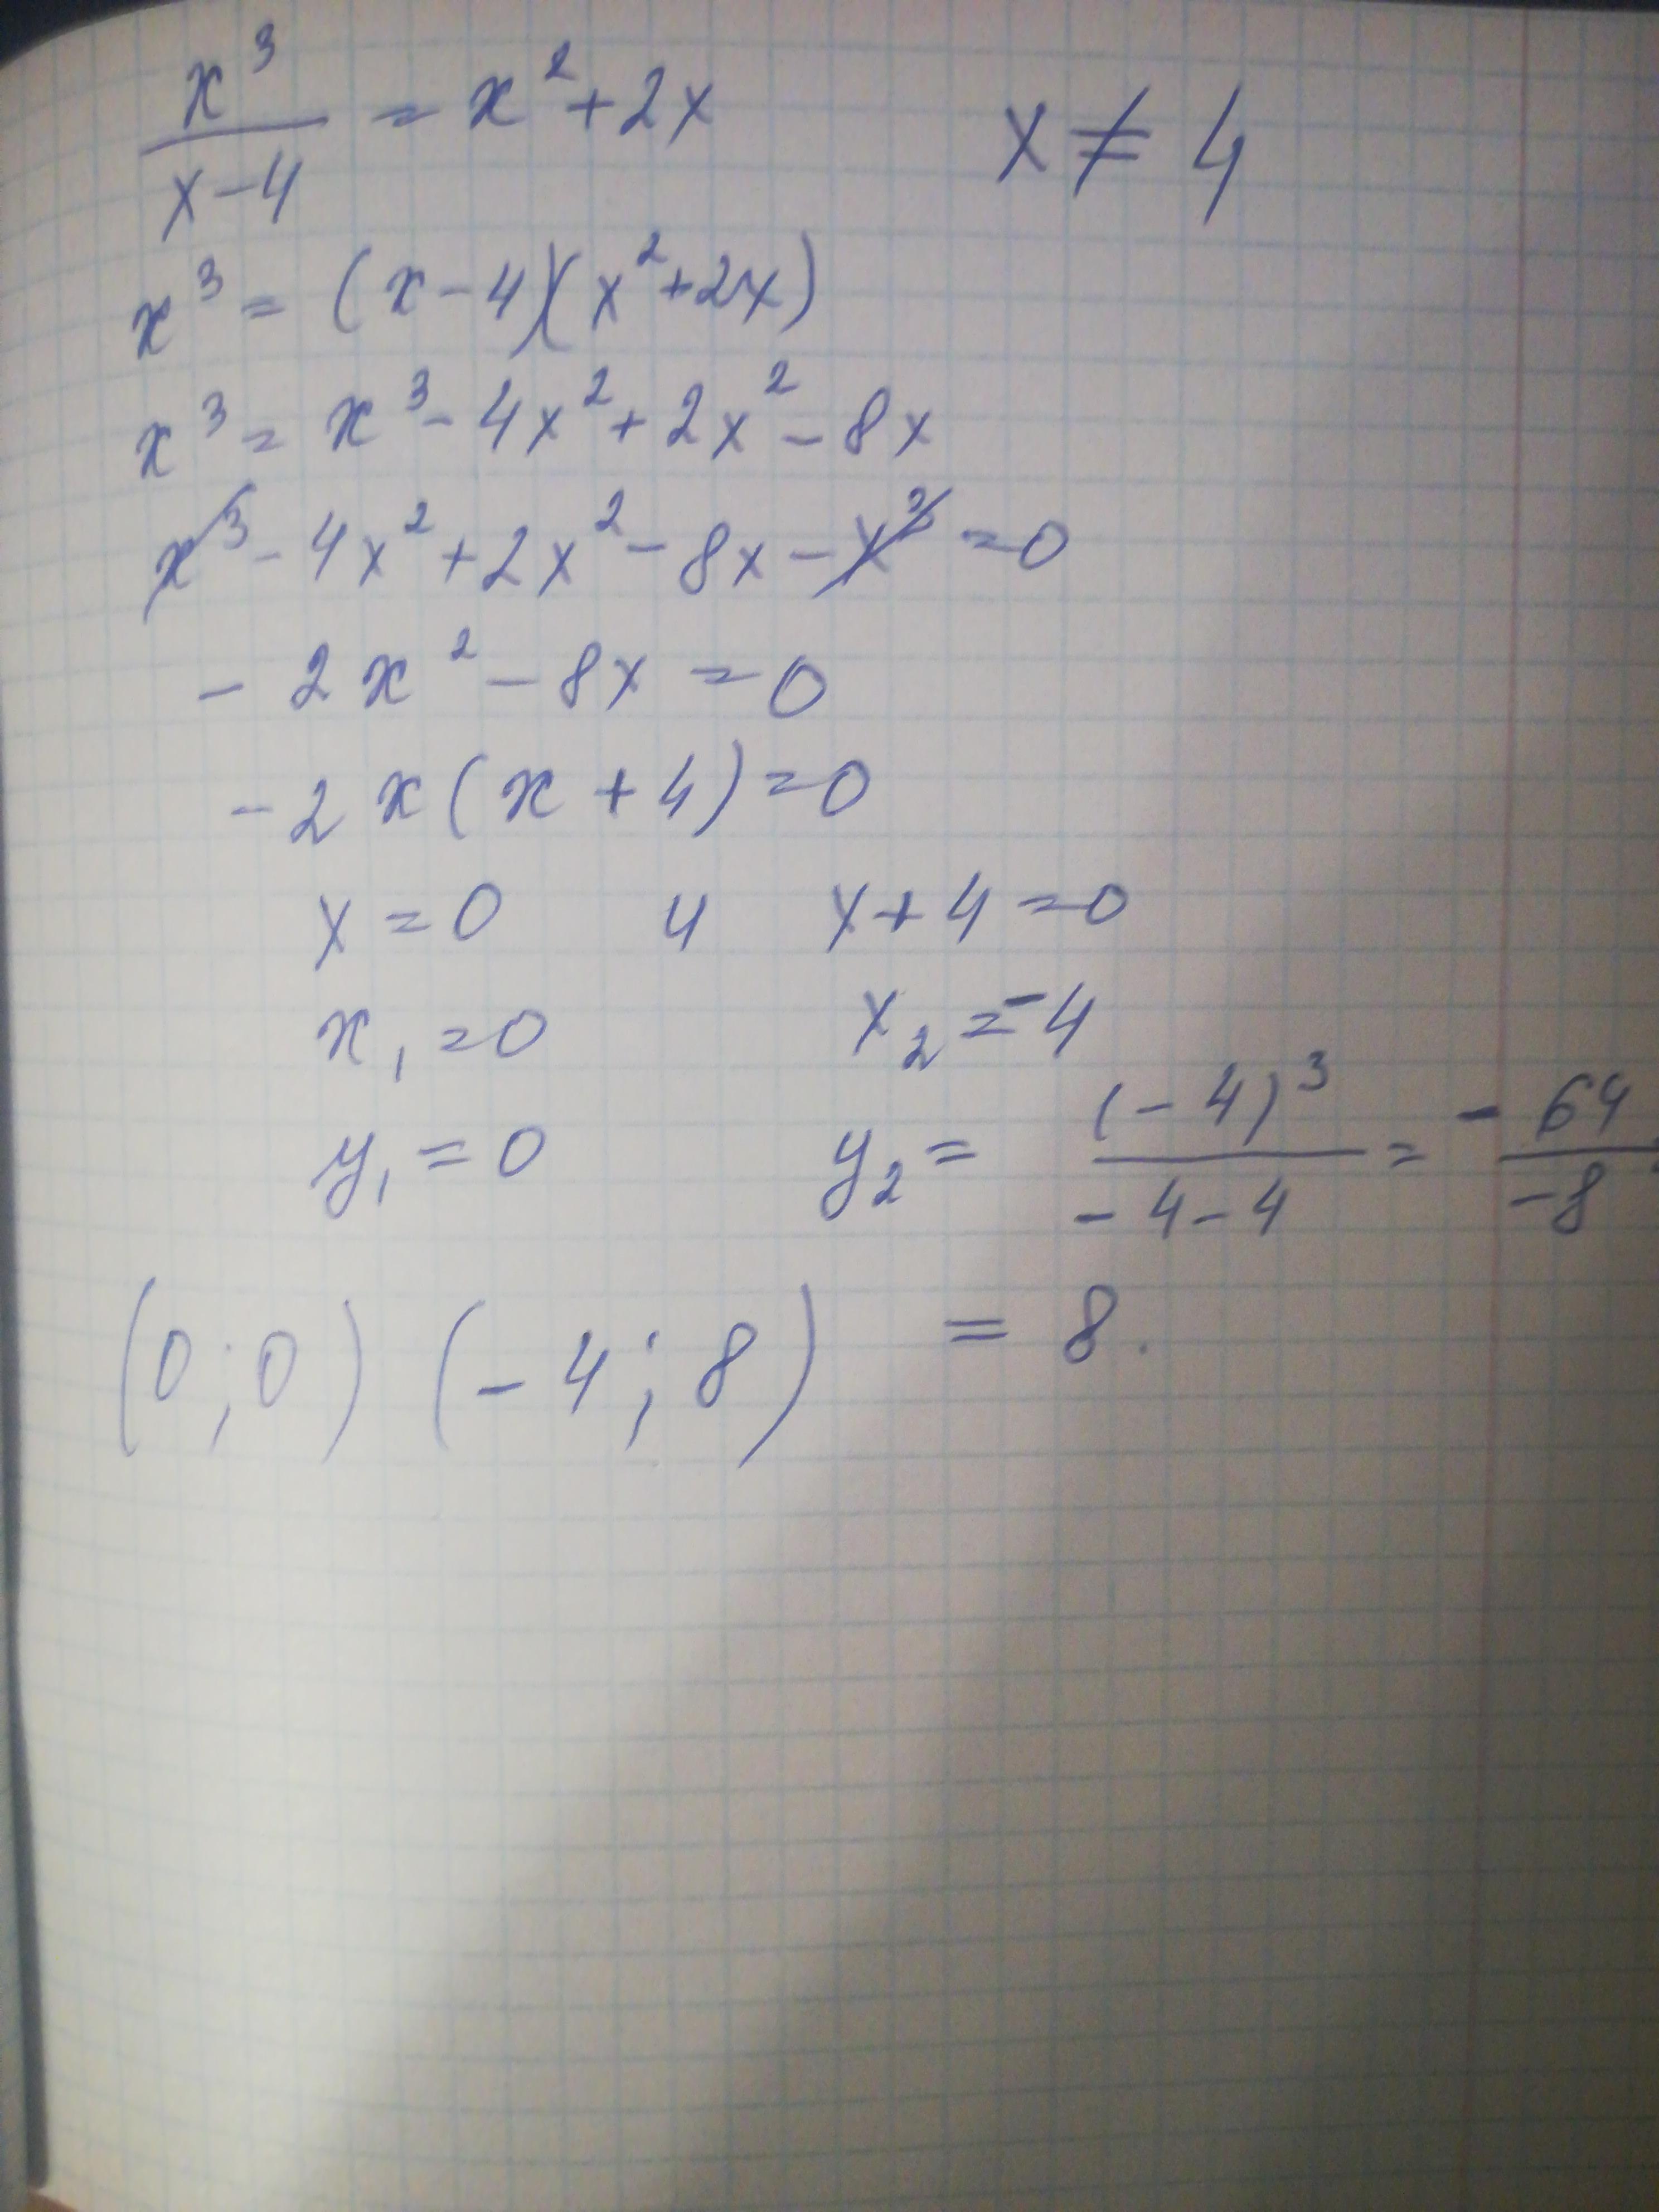 x³/(x-4) = x²+2x x ≠ 4
x³ = (x-4)(x²+2x)
x³ = x³-4x²+2x²-8x
x³-4x²+2x²-8x-x³=0
-2x²-8x=0
-2x(x+4)=0
x=0 и x+4=0
x₁=0 x₂=-4
y₁=0 y₂= (-4)³/(-4-4) = -64/-8
(0;0) (-4;8) = 8.